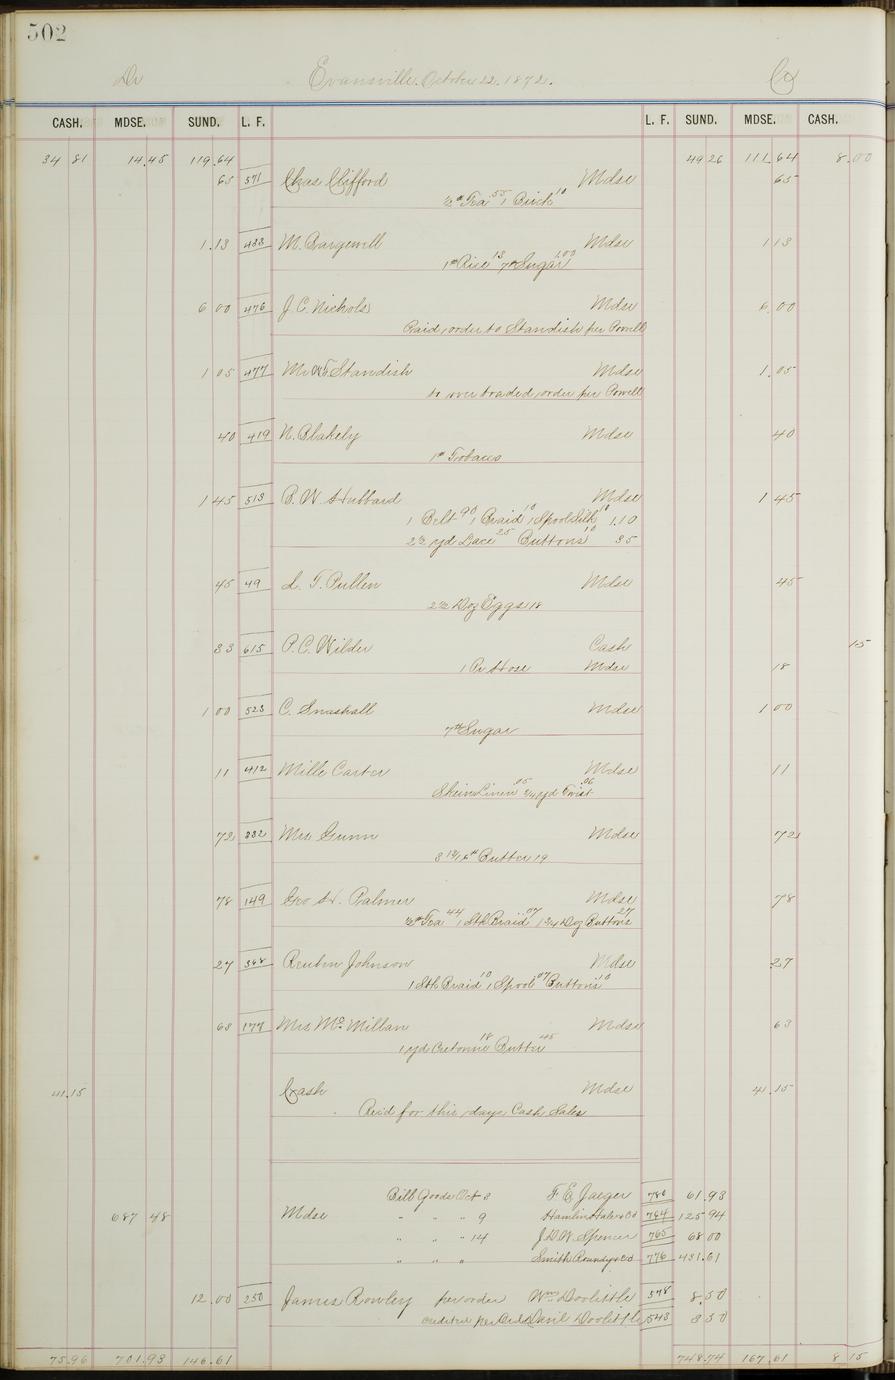 502
Dr Evansville. October 22. 1872. Cr
CASH. MDSE. SUND. L. F. L. F. SUND. MDSE. CASH.
34 81 14.45 119.64 49 26 111.64 8.00
65 571 Chas Clifford Mdse 65
½ # Tea 55 1 Birch 10
1.13 433 M. Bargewell Mdse 1 13
1 # Rice 13 7 # Sugar 1.00
6 00 476 J. C. Nichols Mdse 6.00
Paid, order to Standish per Powell
1 05 477 Standish Mdse 1.05
to over traded, order per Powell
40 419 N. Blakely Mdse 40
1 # Tobacco
1 45 513 P. W. Hubbard Mdse 1 45
1 Belt 90 1 Braid 10 1 Spool Silk 10 1.10
2½ yd Lace 25 Buttons 10 35
45 49 L. T. Pullen Mdse 45
2½ Doz Eggs 18
33 615 P. C. Wilder Cash 15
1 Pr Hose Mdse 18
1 00 523 C. Snashall Mdse 1 00
7 # Sugar
11 412 Mille Carter Mdse 11
Skein Linen .05 ¾ yd Twist .06
72 332 Mrs Gunn Mdse 72
3 13/16 # Butter 19
78 149 Geo H. Palmer Mdse 78
½ # Tea 44 1 Stk Braid 07 1 ¾ Doz Buttons 27
27 368 Reuben Johnson Mdse 27
1 Stk Braid 10 1 Spool 07 Buttons 10
63 177 Mrs McMillan Mdse 63
1 yd Cretonne 18 Butter 45
41.15 Cash Mdse 41.15
Recd for this days Cash Sales
Bill Goods Oct 8 F. E. Jaeger 780 61.93
687 48 Mdse " " " 9 Hamlin Hale & Co 764 125 94
" " " 14 J. D. W. Spencer 765 68 00
" " " Smith Roundy & Co 776 431.61
12.00 250 James Rowley per order Wm Doolittle 578 8.50
credited per Ord David Doolittle 543 3 50
75.96 701.93 146.61 748.74 167.61 8 15